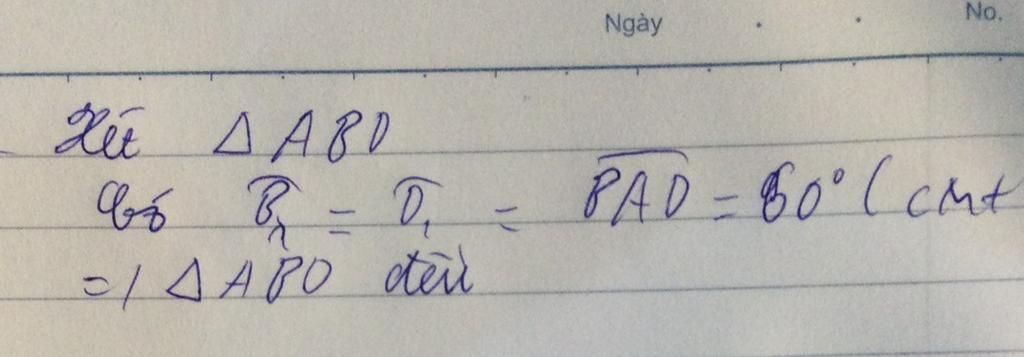 Ngày No.
Xét Δ ABD
Có B̂₁ = D̂₁ = BAD = 60° ( cmt
=> Δ ABD đều